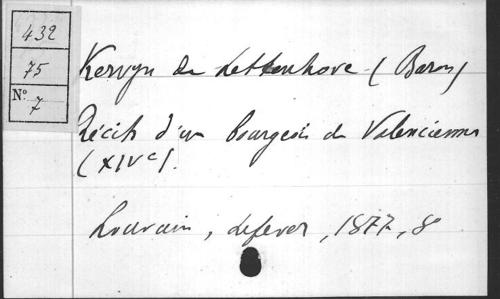 432
75
N° 7
Kervyn de Lettenhove (Baron)
Récits d'un bourgeois de Valenciennes
(XIVe).
Louvain, Lefever, 1877, 8°